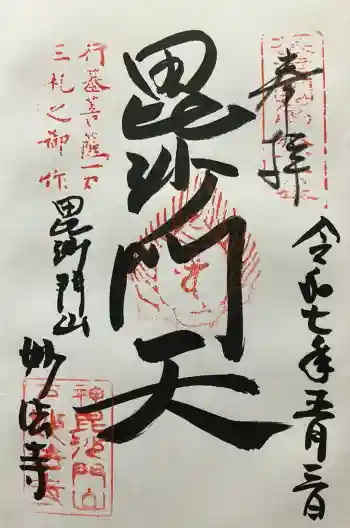 奉拝
令和七年五月三日
毘沙門天
行基菩薩一刀
三礼之御作
毘沙門山
妙法寺